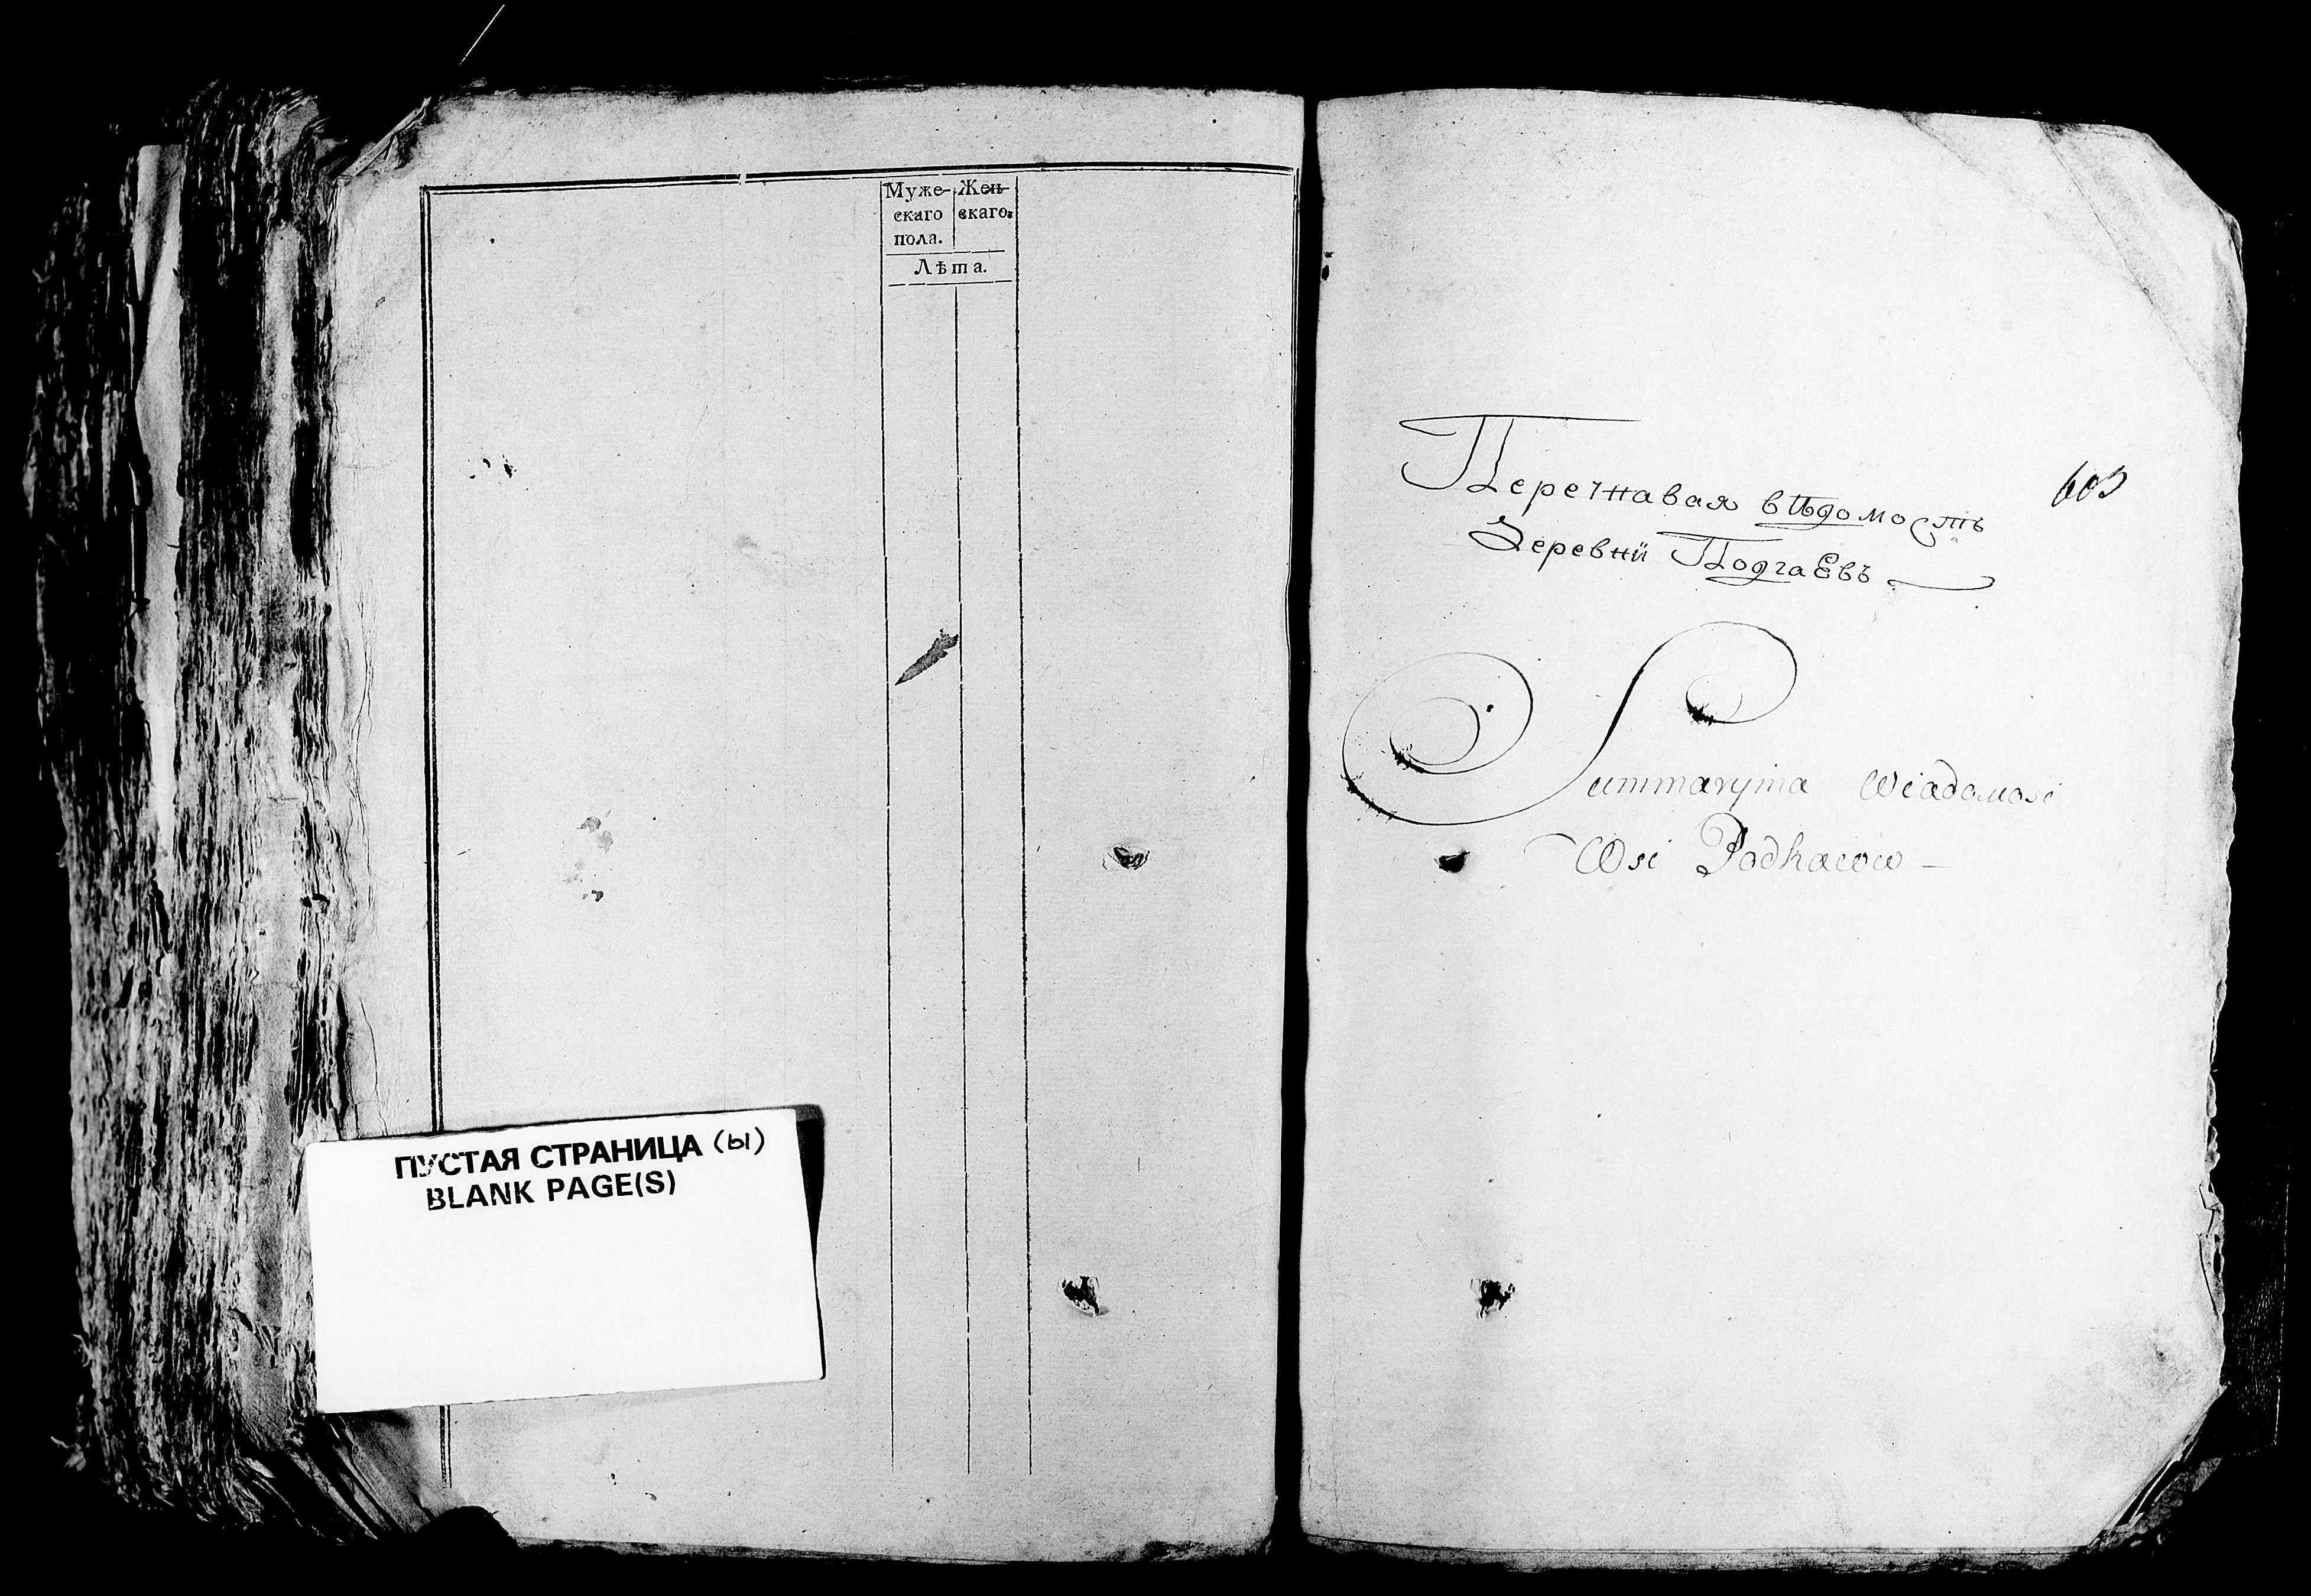 Муже- Жен-
скаго скаго.
пола.
Лѣта.
ПУСТАЯ СТРАНИЦА (ы)
BLANK PAGE(S)
Перечнавая вѣдомость
деревни Подгаевъ
Summaryina Wiadomosc
Wsi Podhaiow